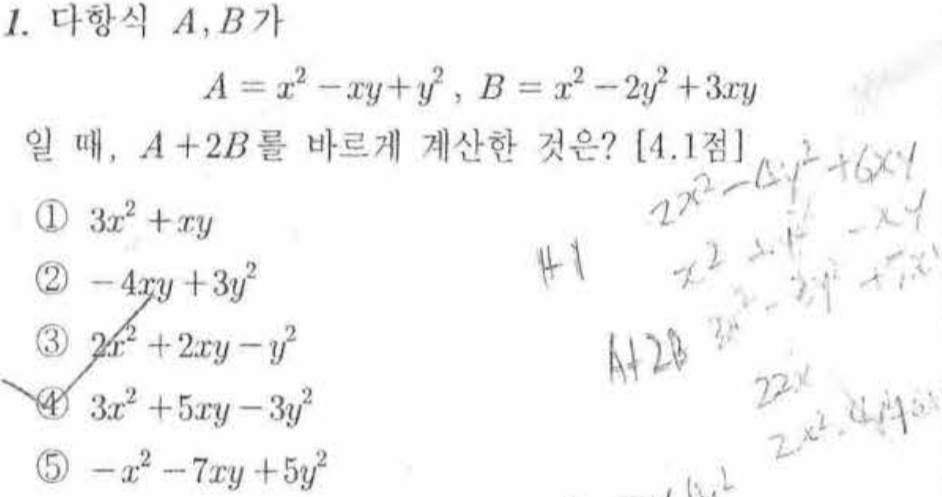 1. 다항식 A, B가
A = x² - xy + y² , B = x² - 2y² + 3xy
일 때, A + 2B를 바르게 계산한 것은? [4.1점]
① 3x² + xy
② -4xy + 3y²
③ 2x² + 2xy - y²
④ 3x² + 5xy - 3y²
⑤ -x² - 7xy + 5y²
2x² - 4y² + 6xy
x² + y² - xy
A+2B 3x² - 3y² + 5x
22x
2x²